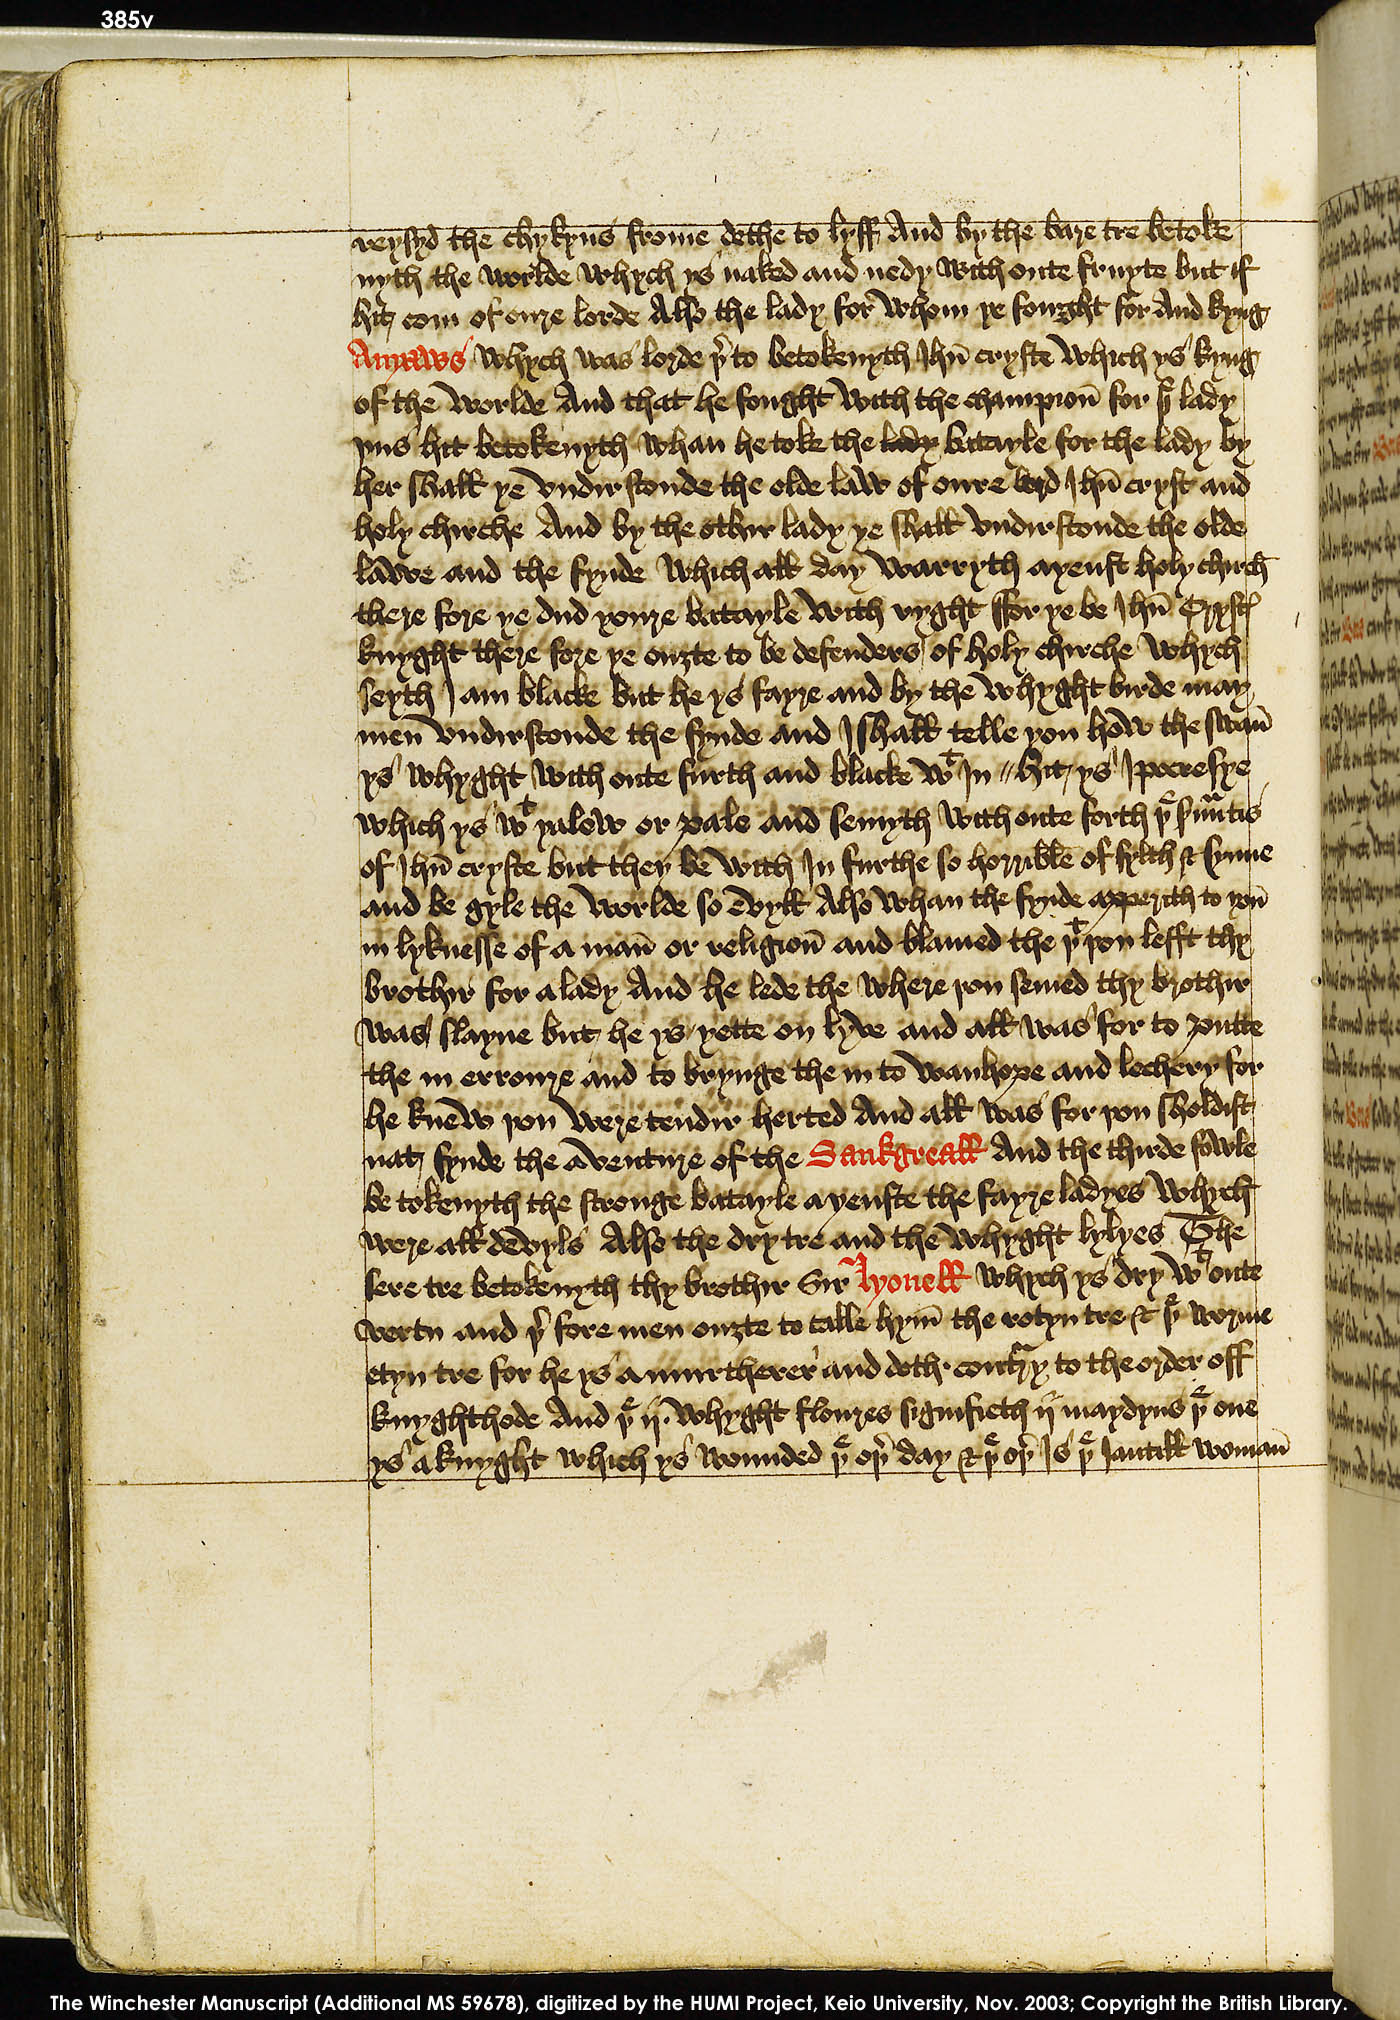 385v
reysyd the chykyns frome dethe to lyff And by the bare tre betoke
nyth the worlde whych ys naked and nedy with oute fruyte but if
hit com of oure lorde Also the lady for whom ye fought for And kyng
Anyaws whych was lorde þ͛ to betokenyth Jhũ cryste which ys kyng
of the worlde And that he fought with the champion̄ for þͤ lady
þus hit betokenyth whan he toke the lady batayle for the lady by
her shall ye vndirstonde the olde law of oure lord Jhũ cryst and
holy chirche And by the othir lady ye shall vndirstonde the olde
lawe and the fynde which all day warryth ayenst holy chirch
there fore ye dud youre batayle with ryght ffor ye be Jhũ Crystꝭ
knyght there fore ye ouȝte to be defenders of holy chirche whych
seyth I am blacke but he ys fayre and by the whyght birde may
men vndirstonde the fynde and I shall telle you how the swan̄
ys whyght with oute furth and blacke wͭ In // hit ys Ipocresye
which ys wͭ yalow or pale and semyth with oute forth þͤ s̃uãtis
of Jhũ cryste but they be with In furthe so horrible of fylth & synne
and be gyle the worlde so evyll Also whan the fynde apperith to þou
in lyknesse of a man̄ or religion̄ and blamed the þͭ þou lefft thy
brothir for a lady And he lede the where þou semed thy brothir
was slayne but he ys yette on lyve and all was for to putte
the in erroure and to brynge the in to wanhope and lechery for
he knew þou were tendir herted And all was for þou sholdist
nat fynde the aventure of the Sankgreall And the thirde fowle
be tokenyth the stronge batayle ayenste the fayre ladyes whych
were all devyls Also the dry tre and the whyght lylyes The
sere tre betokenyth thy brothir Sir Lyonell whych ys dry wͭ oute
vertu and þ͛ fore men ouȝte to calle hym̄ the rotyn tre & þͤ worme
etyn tre for he ys a murtherer and doth contrͣy to the order off
knyghthode And þͤ ij. whyght floures signifieth ij maydyns þͤ one
ys a knyght which ys wounded þͤ oþ͛ day & þͤ oþ͛ Is þͤ Jantill woman̄
The Winchester Manuscript (Additional MS 59678), digitized by the HUMI Project, Keio University, Nov. 2003; Copyright the British Library.